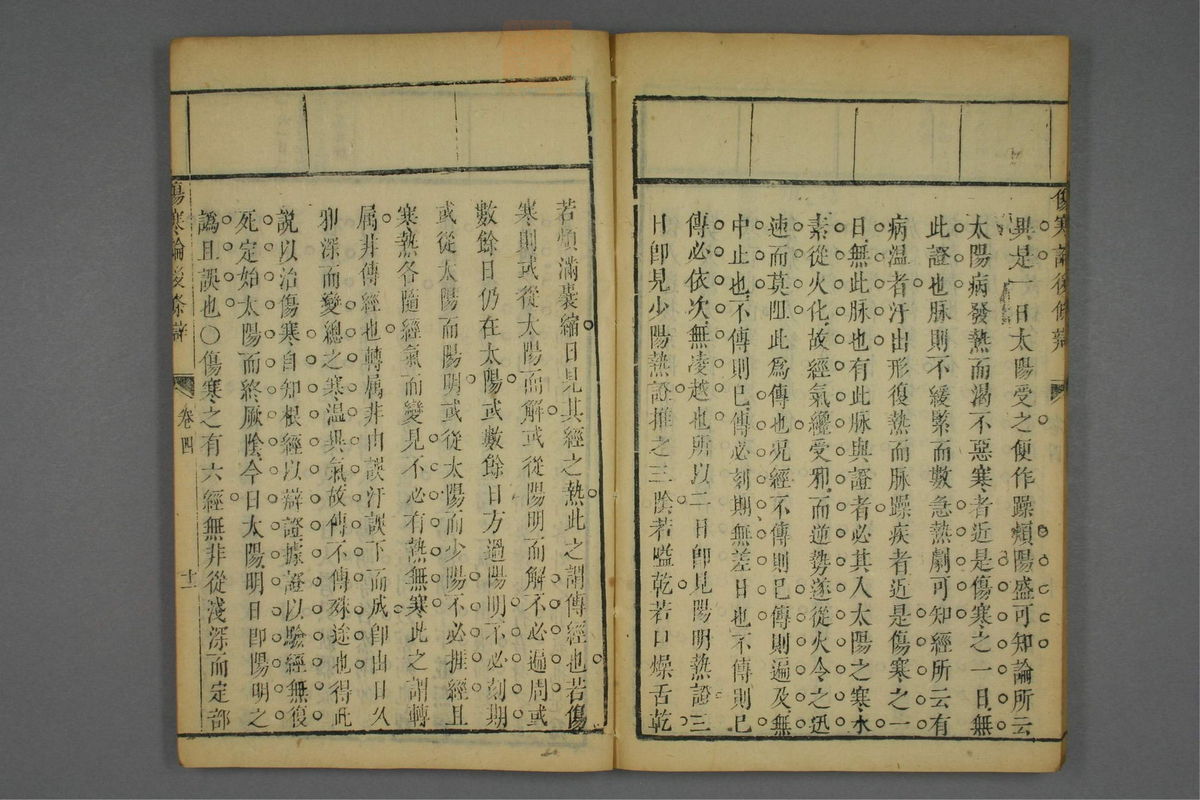 傷寒論後條辯
異是一日太陽受之便作躁煩陽盛可知論所云
太陽病發熱而渴不惡寒者近是傷寒之一日無
此證也脉則不緩緊而數急熱劇可知經所云有
病温者汗出形復熱而脉躁疾者近是傷寒之一
日無此脉也有此脉與證者必其入太陽之寒水
素從火化故經氣纔受邪而逆勢遂從火令之迅
速而莫阻此爲傳也况經不傳則已傳則遍及無
中止也不傳則已傳必刻期無差日也不傳則已
傳必依次無凌越也所以二日卽見陽明熱證三
日卽見少陽熱證推之三陰若嗌乾若口燥舌乾
若煩滿囊縮日見其經之熱此之謂傳經也若傷
寒則或從太陽而解或從陽明而解不必遍周或
數餘日仍在太陽或數餘日方過陽明不必刻期
或從太陽而陽明或從太陽而少陽不必挨經且
寒熱各隨經氣而變見不必有熱無寒此之謂轉
属非傳經也轉属非由誤汗誤下而成卽由日久
邪深而變總之寒温異氣故傳不傳殊途也得此
説以治傷寒自知根經以辯證據證以驗經無復
死定始太陽而終厥陰今日太陽明日卽陽明之
譌且誤也〇傷寒之有六經無非從淺深而定部
傷寒論後條辯
卷四
十二